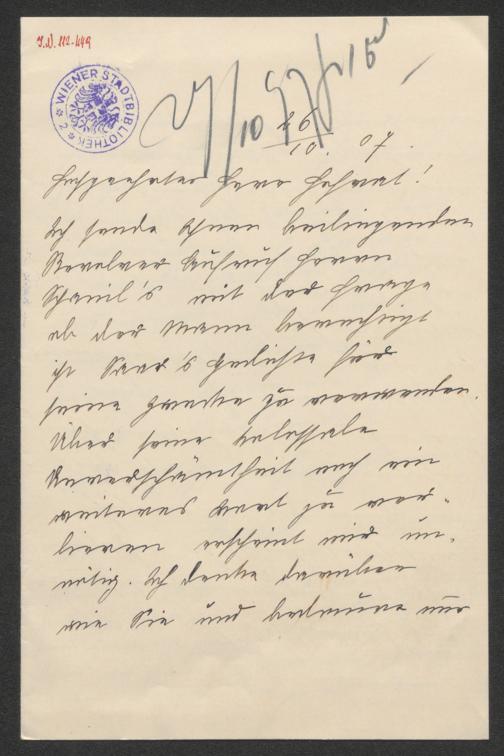 I.N. 112.449
WIENER STADTBIBLIOTHEK
26
10. 07.
Hochgeehrter Herr Hofrat!
Ich sende Ihnen beiliegenden
Revolver Aufruf Herrn
mit der Frage
ob der Mann berechtigt
ist Saar's Gedichte für
seine Zwecke zu verwenden.
Über seine kolossale
Unverschämtheit noch ein
weiteres Wort zu ver-
lieren erscheint mir un-
nötig. Ich denke darüber
wie Sie und bedaure nur